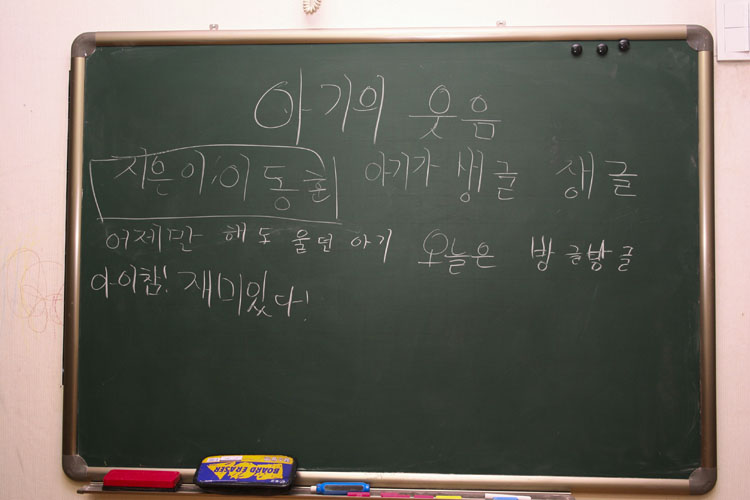 아기의 웃음
지은이:이동훈 아기가 생글 생글
어제만 해도 울던 아기 오늘은 방글방글
아이참! 재미있다!
BOARD ERASER